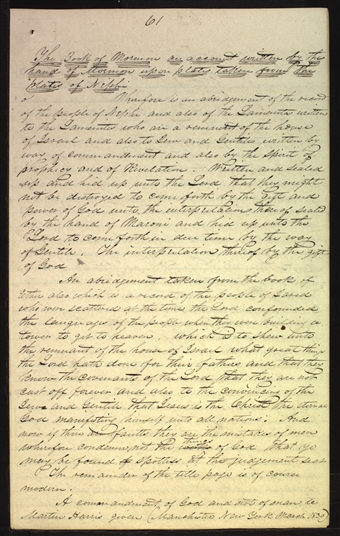 61
The Book of Mormon an account written by the
hand of Mormon upon plates taken from the
plates of Nephi
Wherefore is an abridgement of the record
of the people of Nephi and also of the Lamanites written
to the Lamanites who are a remnant of the house
of Israel and also to Jew and Gentiles written by
way of commandment and also by the Spirit of
prophecy and of Revelation. Written and sealed
up and hid up unto the Lord that they might
not be distroyed to come forth by the Gift and
power of God unto the interpretation thereof sealed
by the hand of Maroni and hid up unto the
Lord to come forth in due time by the way
of Gentile. The interpretation thereof by the gift
of God
An abridgement taken from the book of
Ether also which is a record of the people of Jared
who were scattered at the time the Lord confounded
the language of the people when they were building a
tower to get to heaven which is to shew unto
the remnant of the house of Israel what great things
the Lord hath done for their fathers and that they
know the covenants of the Lord that they are not
cast off forever and also to the convincing of the
Jew and Gentile that Jesus is the Christ the eternal
God manifesting himself unto all nations. And
now if there faults they are the mistakes of men
wherefore condemn not the of God that ye
may be found Spotless at the judgement seat
The remainder of the title page is of course
modern
A commandment of God and not of man to
Martin Harris given (Manchester New York March